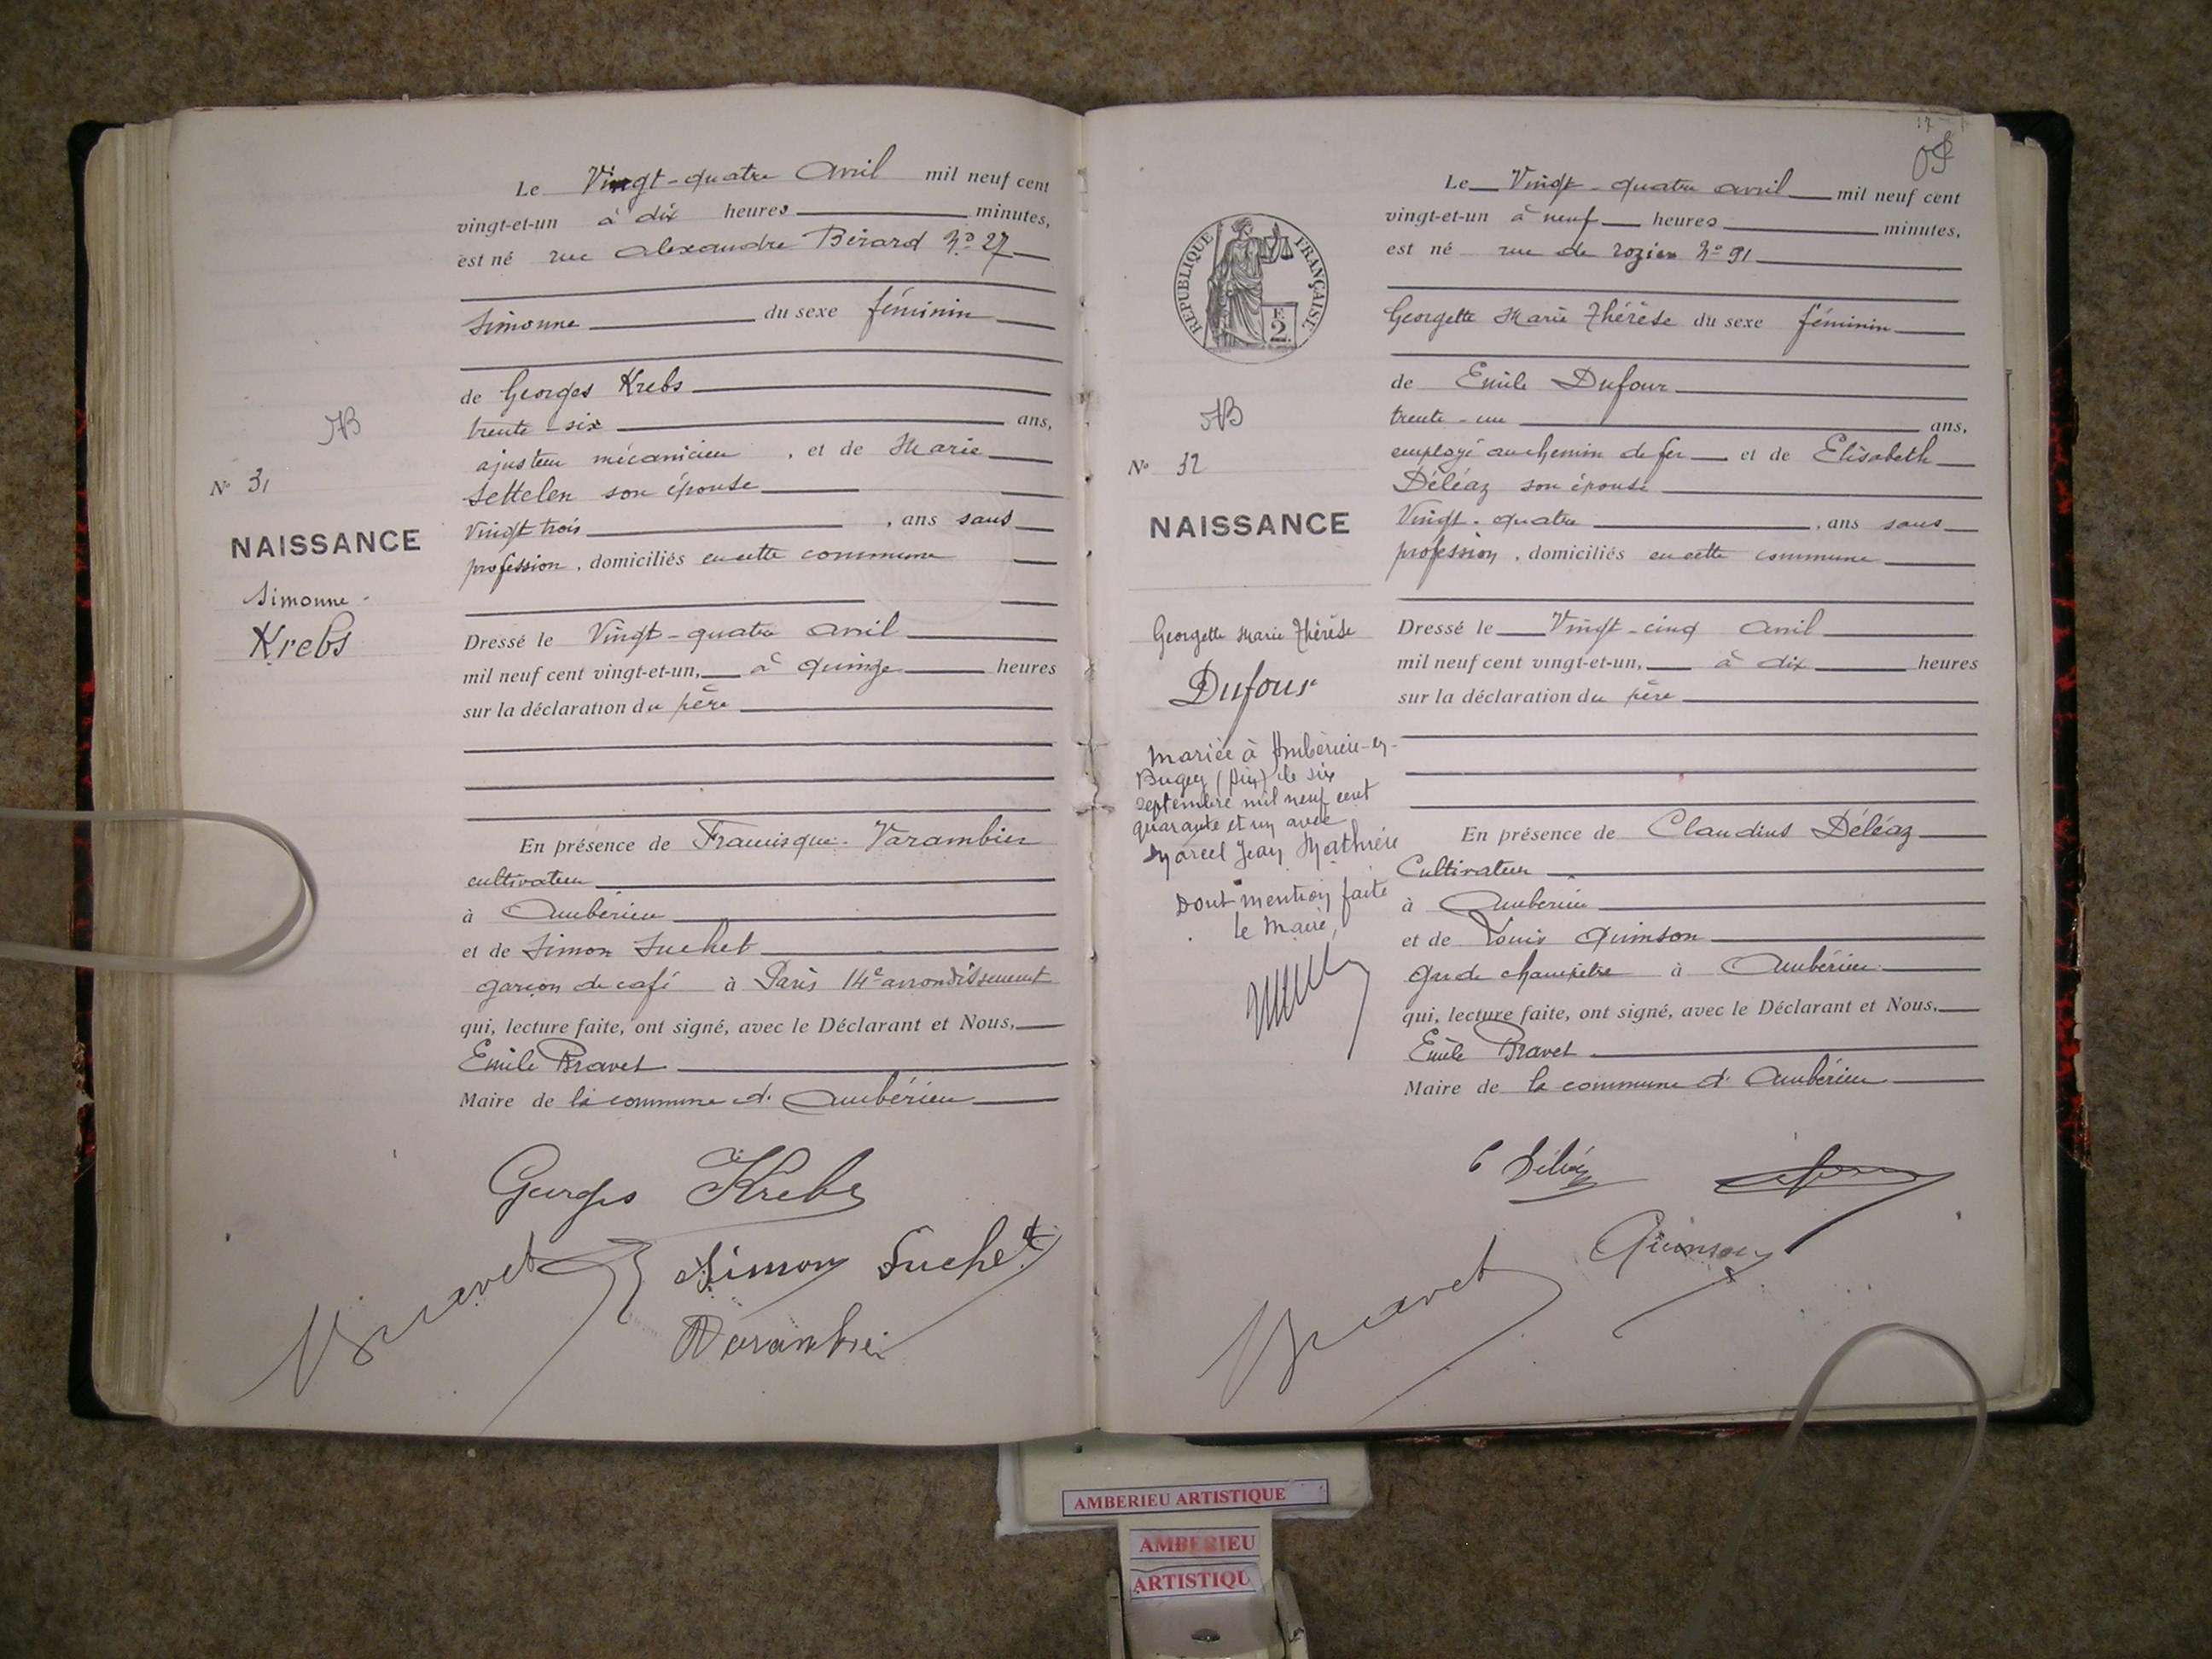 Le Vingt-quatre avril mil neuf cent
vingt-et-un à dix heures minutes,
est né rue Alexandre Bérard No 27
Simonne du sexe féminin
de Georges Krebs
trente-six ans,
ajusteur mécanicien , et de Marie
Settelen son épouse
Vingt trois , ans sans
profession , domiciliés en cette commune
Dressé le Vingt-quatre avril
mil neuf cent vingt-et-un, à quinze heures
sur la déclaration du père
En présence de Francisque Varambier
cultivateur
à Ambérieu
et de Simon Suchet
garçon de café à Paris 14e arrondissement
qui, lecture faite, ont signé, avec le Déclarant et Nous,
Emile Bravet
Maire de la commune d'Ambérieu
Nº 31
NAISSANCE
Simonne
Krebs
Georges Krebs
Bravet
Simon Suchet
Varambier
Le Vingt-quatre avril mil neuf cent
vingt-et-un à neuf heures minutes,
est né rue de Rozier No 91
Georgette Marie Thérèse du sexe féminin
de Emile Dufour
trente-un ans,
employé au chemin de fer et de Elisabeth
Déléaz son épouse
Vingt-quatre , ans sans
profession , domiciliés en cette commune
Dressé le Vingt-cinq avril
mil neuf cent vingt-et-un, à dix heures
sur la déclaration du père
En présence de Claudius Déléaz
Cultivateur
à Ambérieu
et de Louis Quinson
garde champêtre à Ambérieu
qui, lecture faite, ont signé, avec le Déclarant et Nous,
Emile Bravet
Maire de la commune d'Ambérieu
RÉPUBLIQUE FRANÇAISE
F.
2.
Nº 32
NAISSANCE
Georgette Marie Thérèse
Dufour
Mariée à Ambérieu-en-
Bugey (Ain) le six
septembre mil neuf cent
quarante et un avec
Marcel Jean Mathieu
Dont mention faite
le Maire,
C Déléaz
Quinson
Bravet
AMBERIEU ARTISTIQUE
AMBERIEU
ARTISTIQU